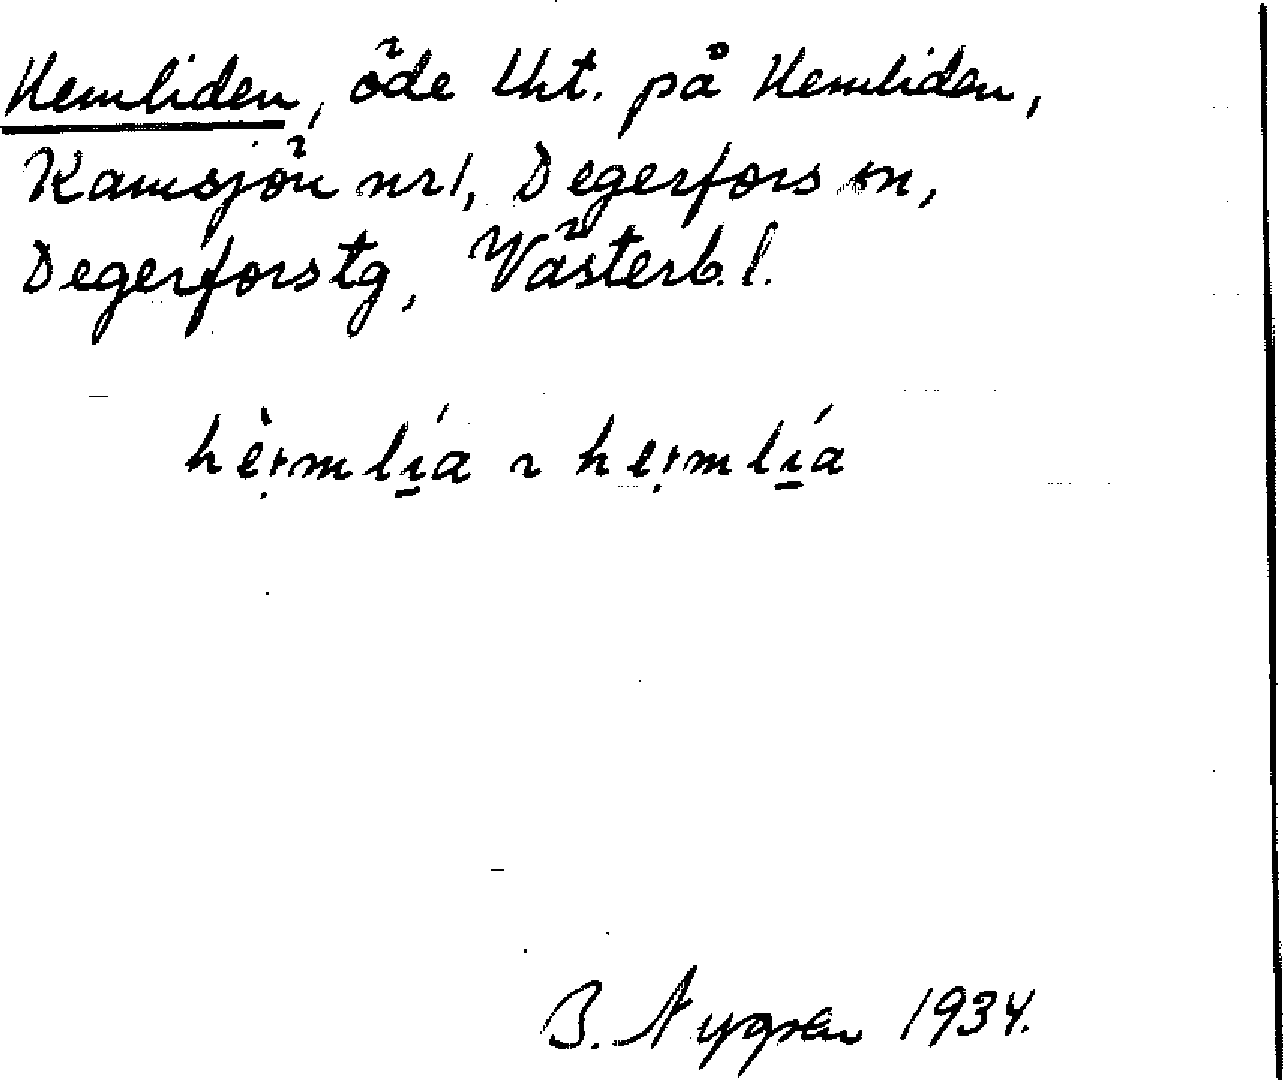 Hemliden, öde lht. på Hemliden,
Kamsjön nr 1, Degerfors sn,
Degerfors tg, Västerb. l.
hè̩ɩmlí̱a ~ he̩ɩmlí̱a
B. Nygren 1934.